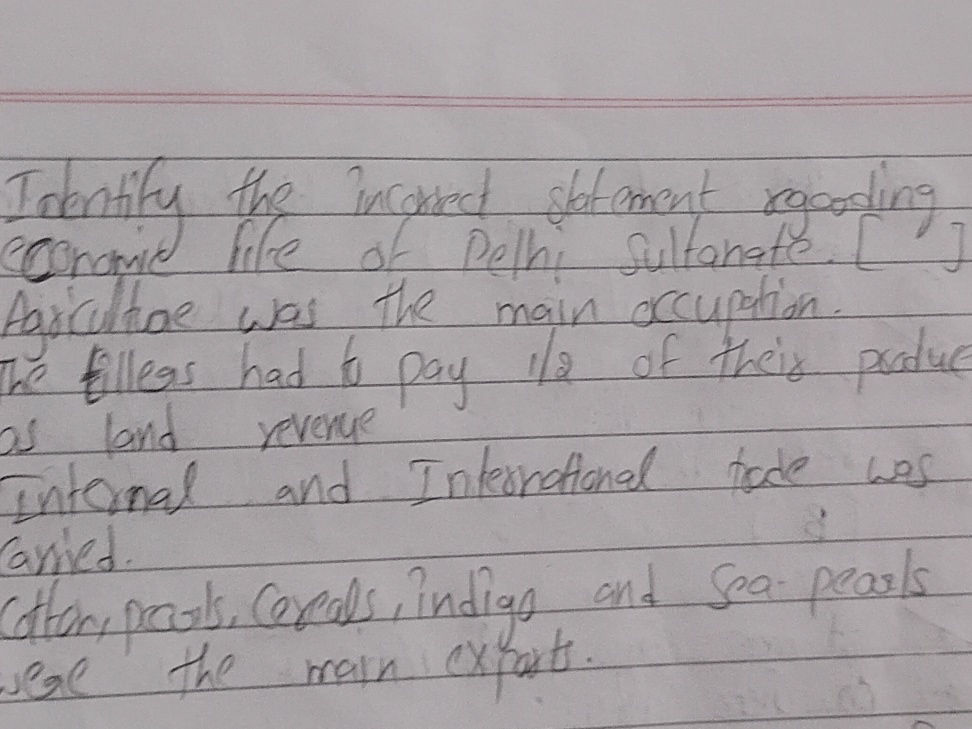 Identify the incorrect statement rgaording
economic life of Delhi Sultanate. [ ]
Agricultue was the main occupation.
The tillers had to pay 1/2 of their produc
as land revenue
Internal and International trade was
Carried.
Cotton, pearls, Cereals, indigo and Sea-pearls
were the main exports.